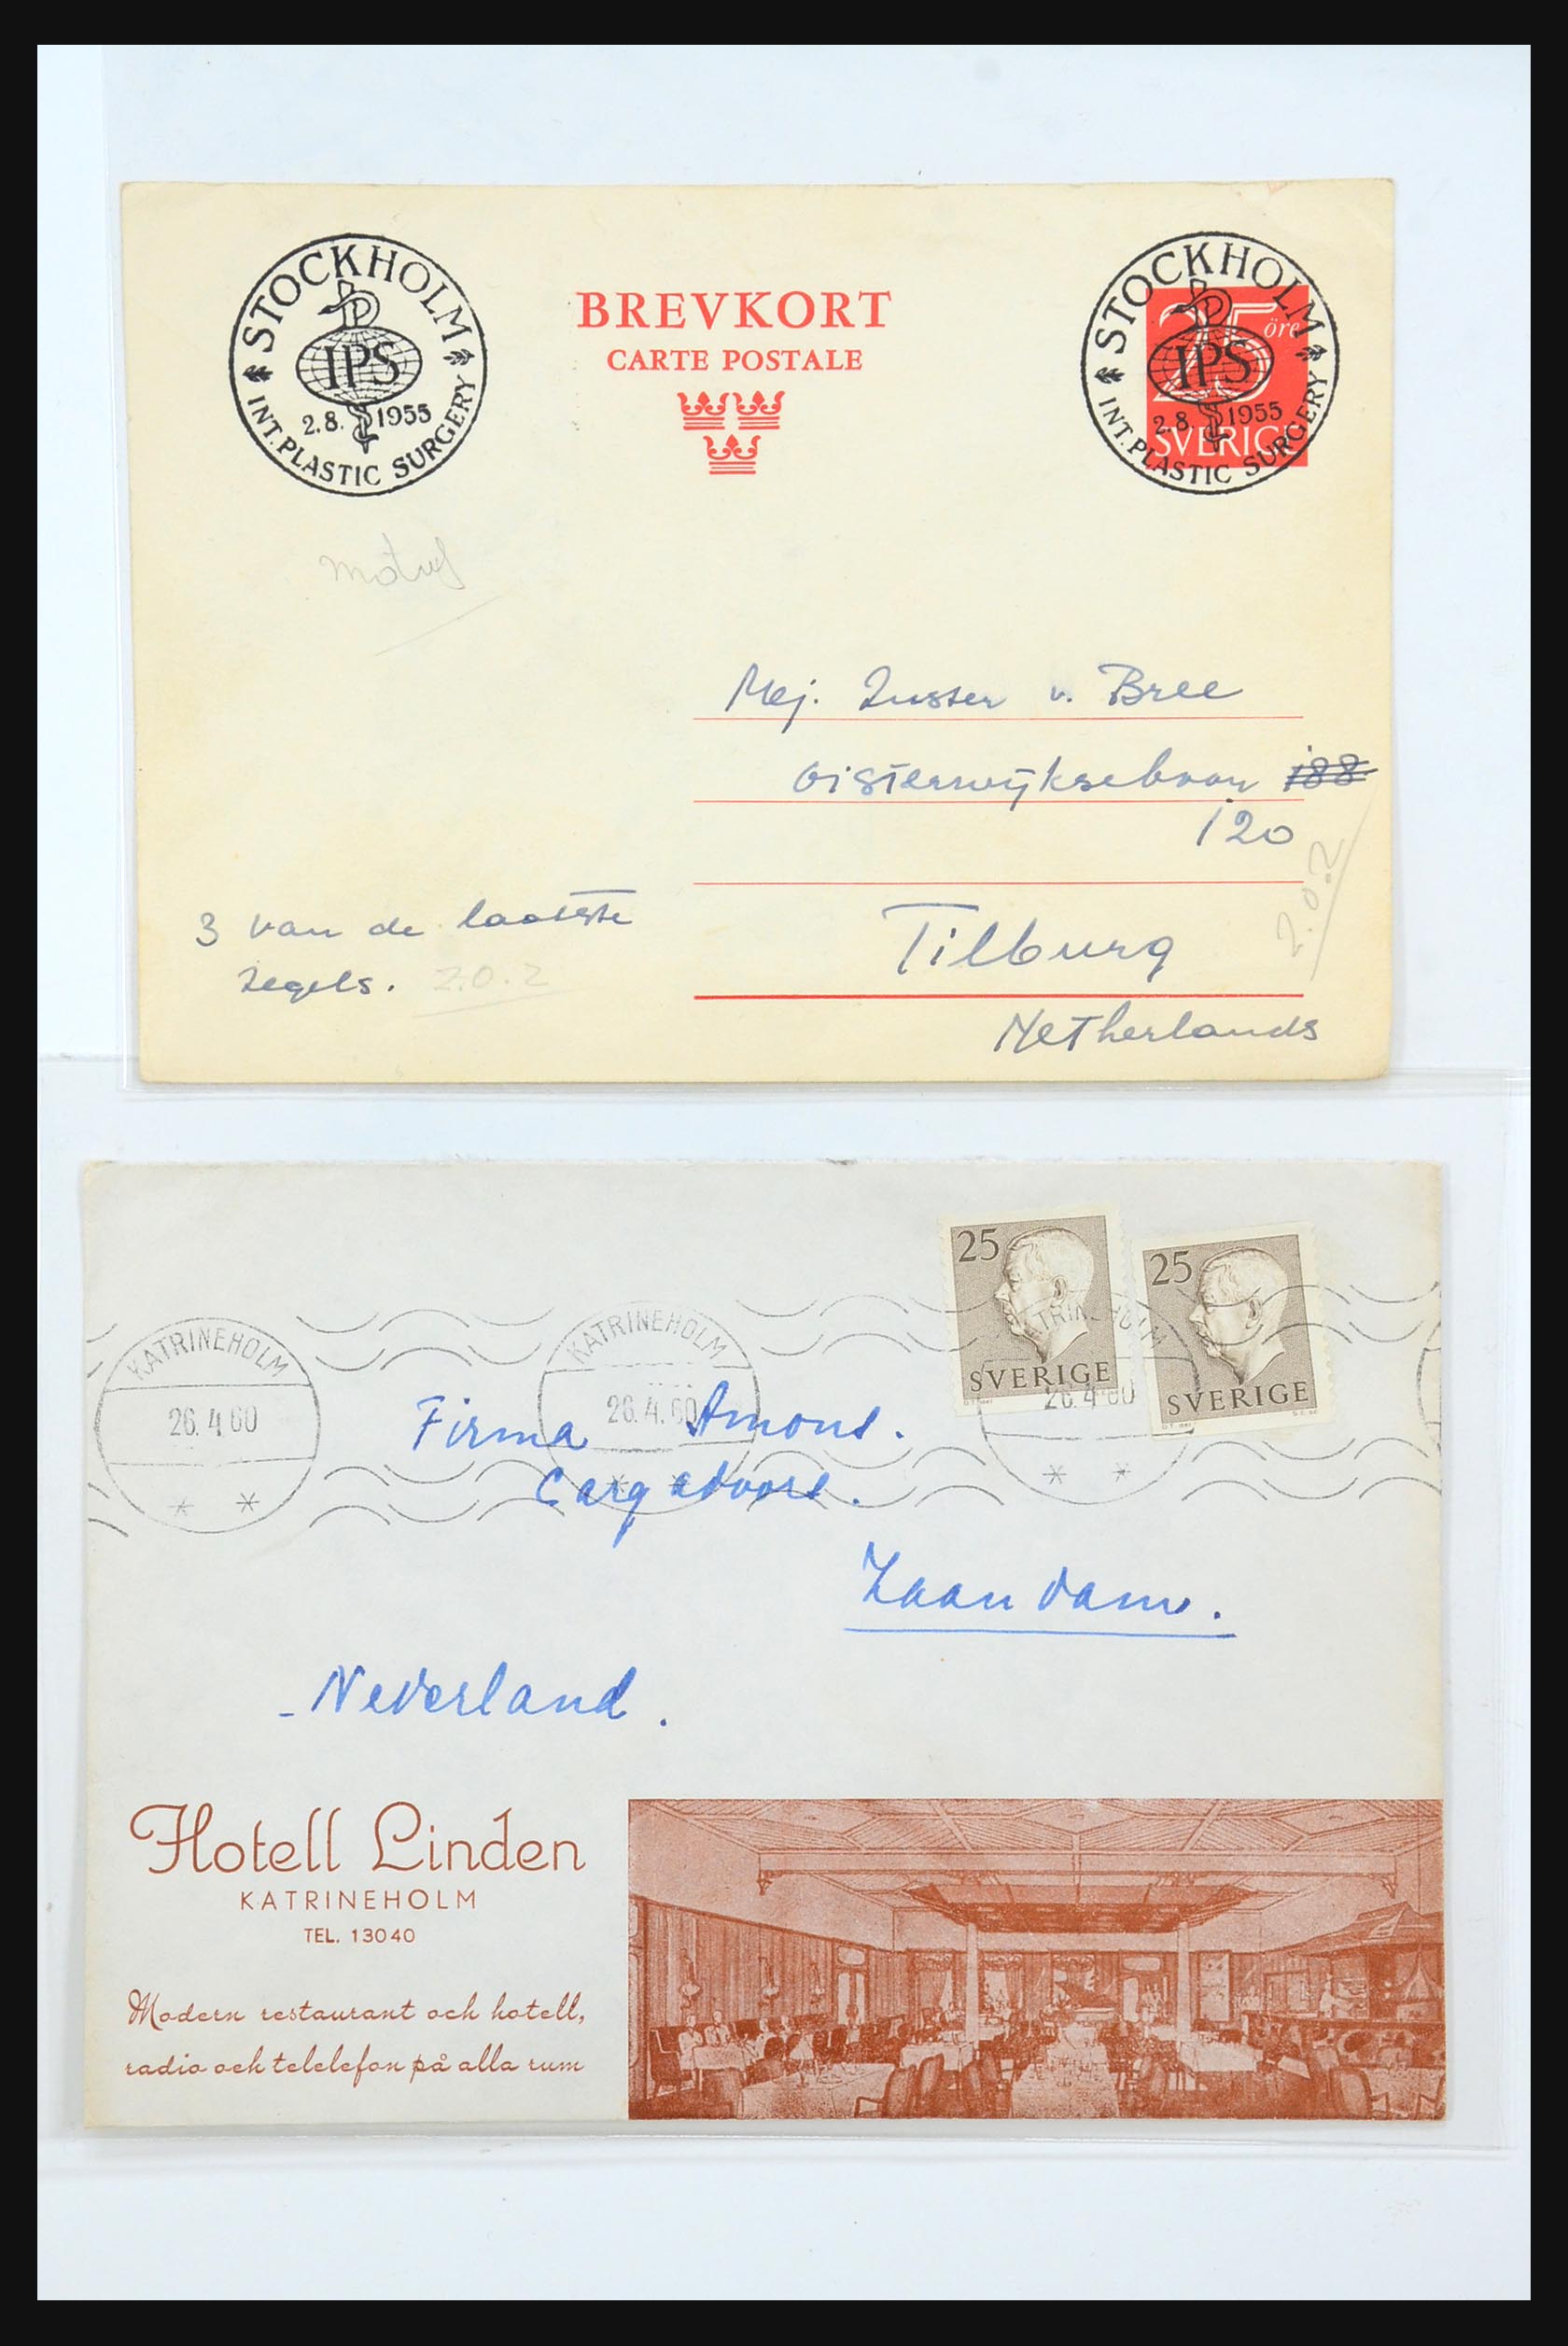 STOCKHOLM
IPS
2.8. 1955
INT. PLASTIC SURGERY
BREVKORT
CARTE POSTALE
STOCKHOLM
25 öre
IPS
2.8. 1955
SVERIGE
INT. PLASTIC SURGERY
motief
Mej. Zuster v. Bree
Oisterwijksebaan 188
120
2.0.2
3 van de laatste
zegels. 2.0.2
Tilburg
Netherlands
25
SVERIGE
25
SVERIGE
KATRINEHOLM
26.4.60
KATRINEHOLM
26.4.60
KATRINEHOLM
26.4.60
Firma
Zaandam.
- Nederland.
Hotell Linden
KATRINEHOLM
TEL. 13040
Modern restaurant och hotell,
radio och telelefon på alla rum